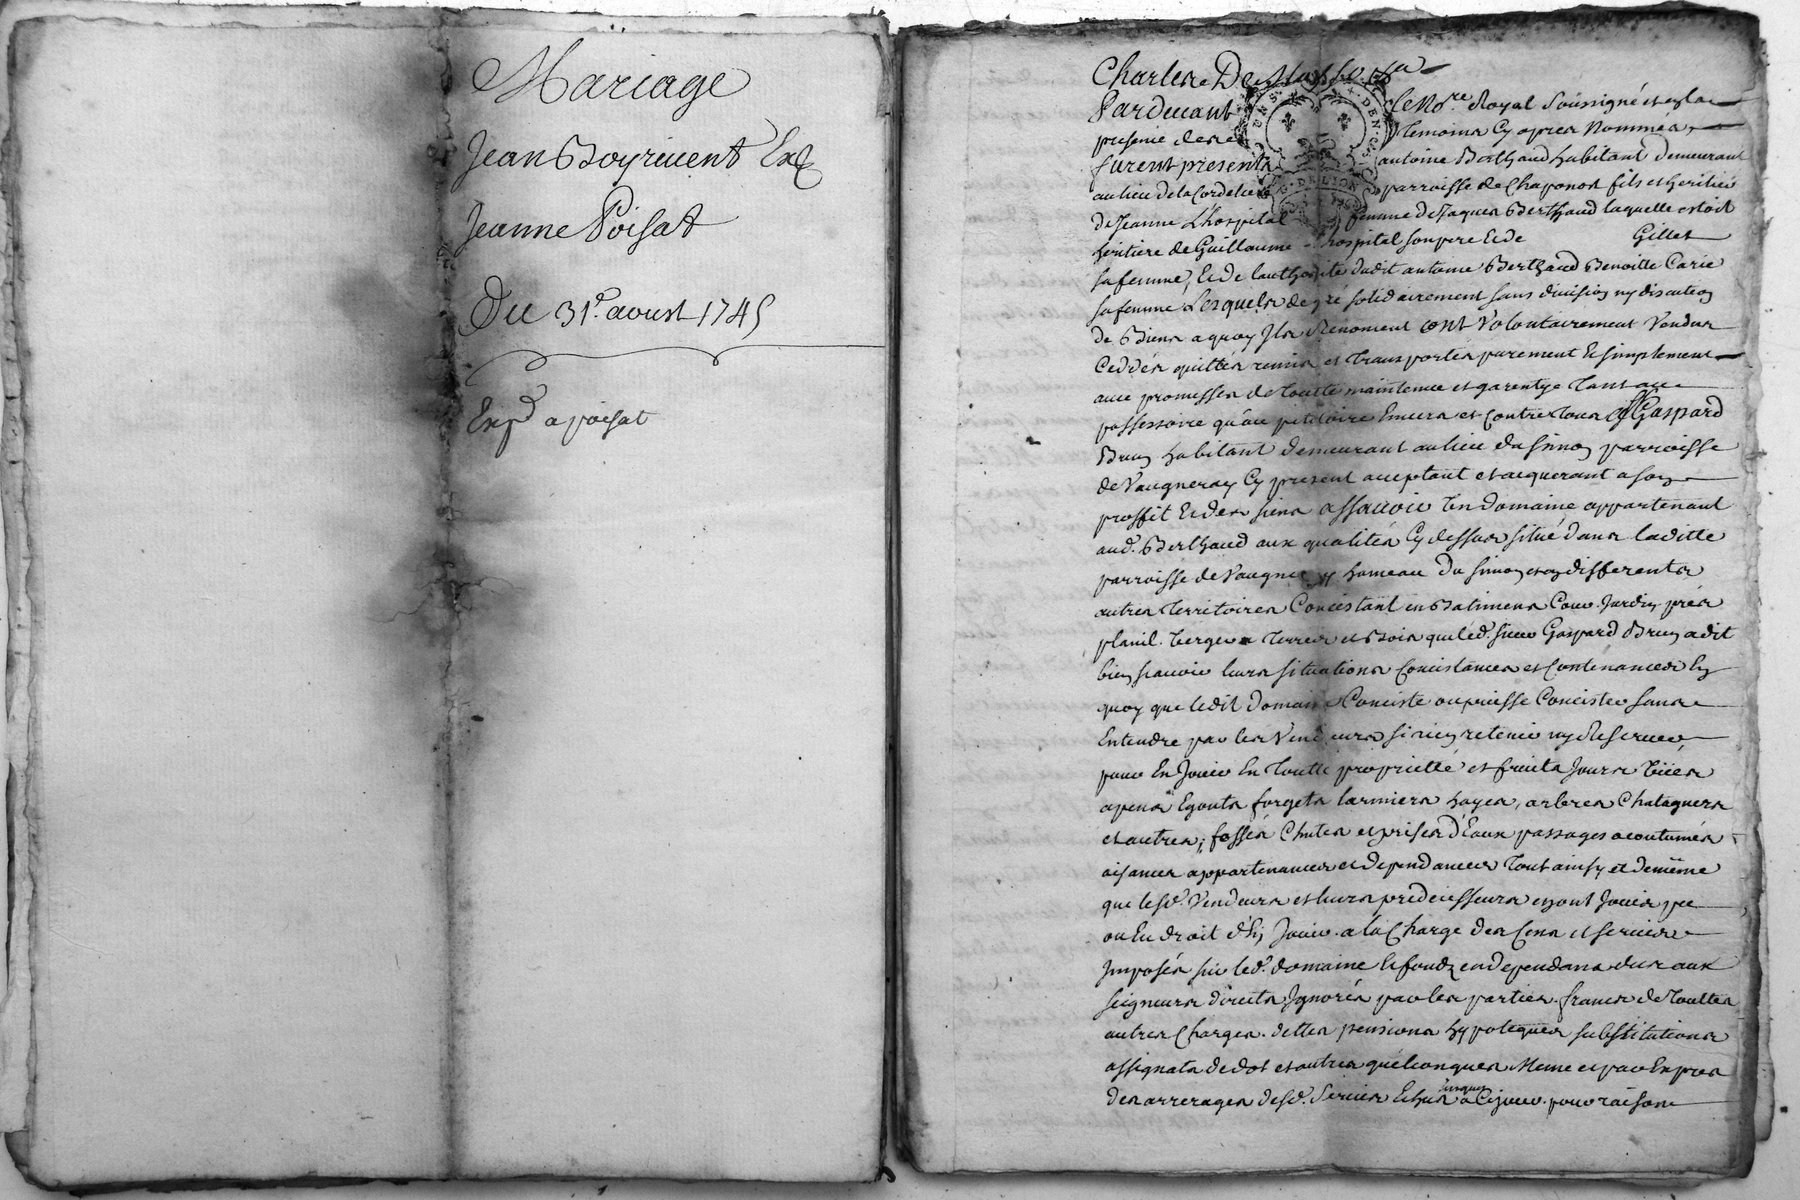 Mariage
Jean Boyrivent Et
Jeanne Poisat
Du 31e. aoust 1745
Expd a poisat
Charles De
Pardevant le No.re Royal soussigné et en la
presence des temoins cy apres Nommés,
furent presents antoine Berthaud habitant demeurant
au lieu de la Cordeliere parroisse de Chaponos fils et heritier
de Jeanne L'hospital femme de Jaques Berthaud laquelle estoit
heritiere de Guillaume L'hospital son pere Et de Gillet
sa femme, Et de lauthorité dudit antoine Berthaud Benoitte Carie
sa femme Lesquels de gré solidairement sans division ny discution
de Biens a quoy Ils Renoncent ont Volontairement Vendus
Ceddés quittés remis et transportés purement Et simplement
avec promesses de toutte maintenue et garentye tant au
possessoire qu'au petitoire Envers et contre tous a Sr Gaspard
Brun habitant demeurant au lieu du Simon parroisse
de Vaugneray Cy present acceptant et acquerant a son
proffit Et des siens assavoir Un domaine appartenant
aud. Berthaud aux qualités Cy dessus situé dans laditte
parroisse de Vaugneray hameau du Simon et en differents
autres territoires Concistant en Batimens Cour. Jardin prés
plauil. Verger terres et Bois que led. sieur Gaspard Brun a dit
bien scavoir leurs situations Concistances et Contenances En
quoy que ledit domaine Conciste ou puisse Concister sans
Entendre par les Vendeurs si rien retenir ny Reserver,
pour En Jouir En toutte proprietté et fruits Jours Vües
apens Egouts forgets larmiers hayes, arbres Chatagners
et autres; fossés Chutes et prises d'Eaux passages acoutumés
aisances appartenances et dependances tout ainsy et de même
que lesd. Vendeurs et leurs predecesseurs en ont Jouis pu
ou Eu droit d'En Jouir. a la Charge des Cens et servis
Imposés sur led. domaine Et fondz en dependans dus aux
seigneurs directs Ignorés par les parties. francs de touttes
autres Charges. dettes pensions hypoteques substitutions
assignats de dot et autres quelconques Meme et par Expres
des arrerages desd. Servis Echus jusques a Ce jour. pour raison